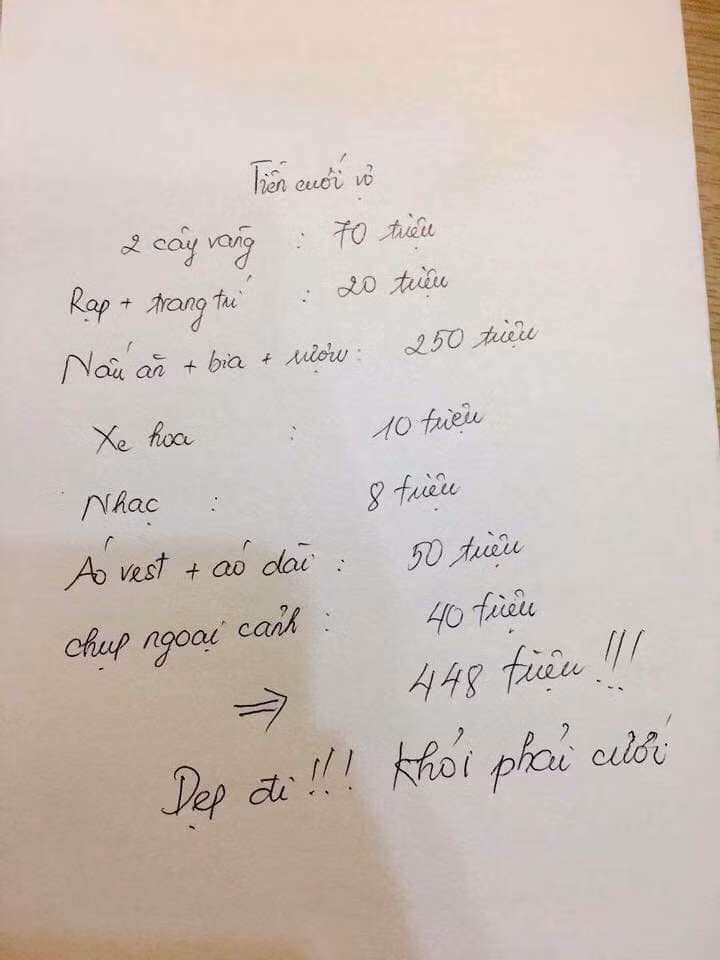 Tiền cưới vợ
2 cây vàng : 70 triệu
Rạp + trang trí : 20 triệu
Nấu ăn + bia + rượu : 250 triệu
Xe hoa : 10 triệu
Nhạc : 8 triệu
Áo vest + áo dài : 50 triệu
chụp ngoại cảnh : 40 triệu
⇒ 448 triệu !!!
Dẹp đi !!! khỏi phải cưới